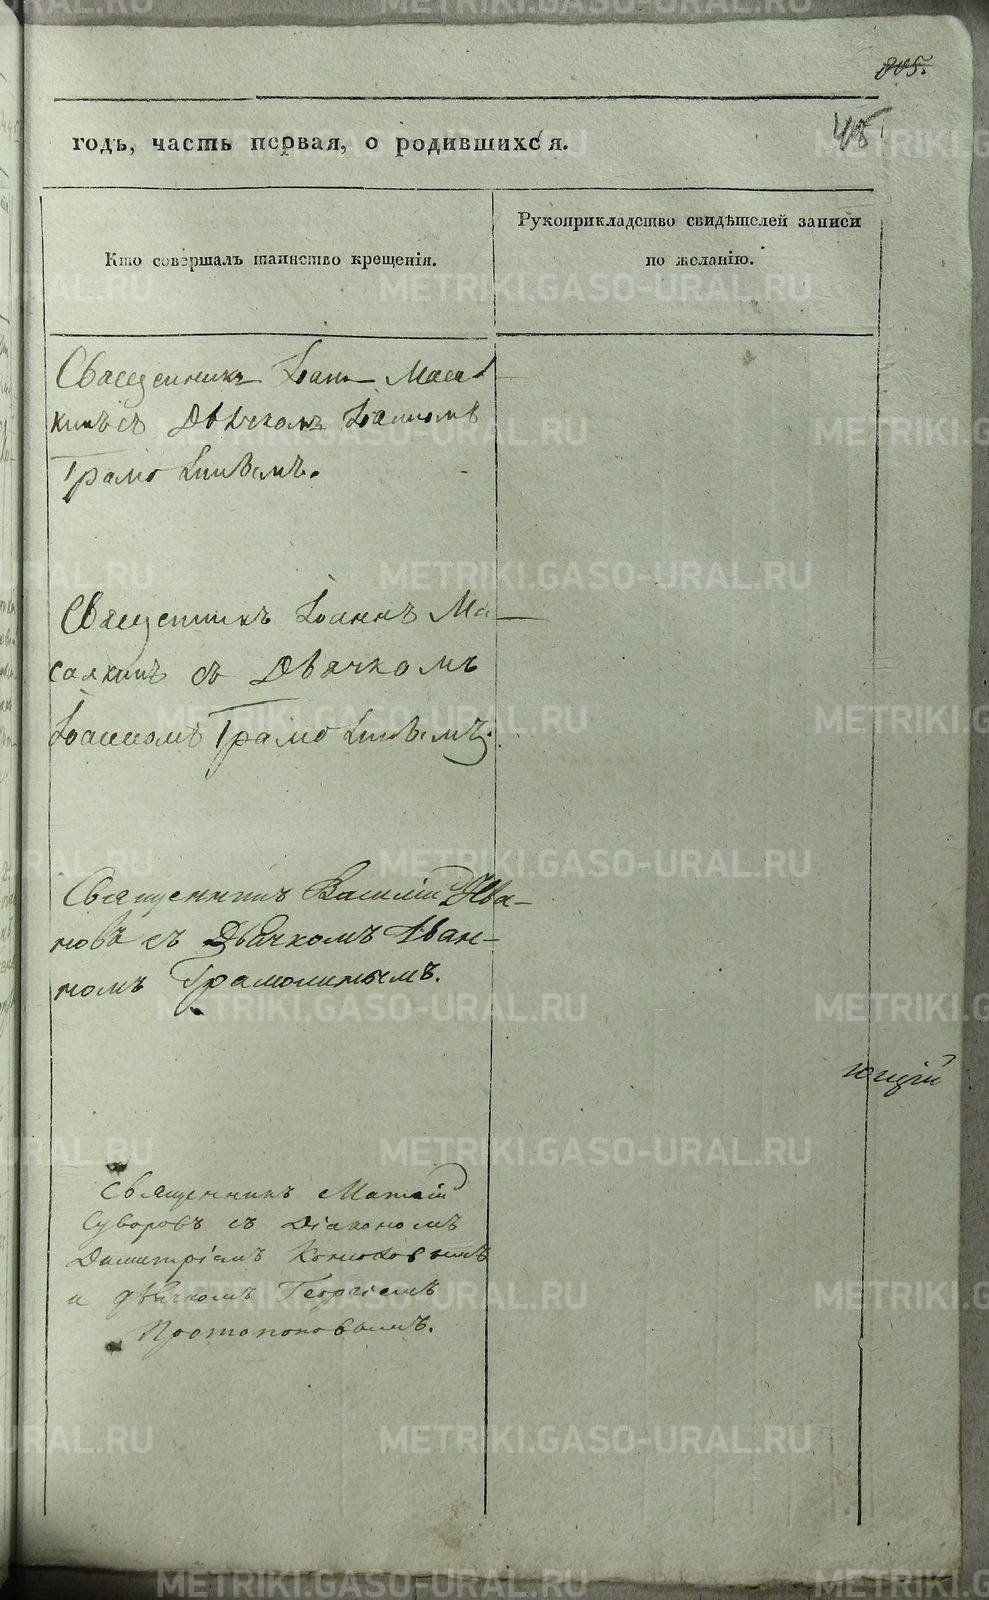 805.
48
годъ, часть первая, о родившихся.
Кто совершалъ таинство крещенія.
Рукоприкладство свидѣтелей записи
по желанію.
Священникъ Іоаннъ Маса
кинъ съ Дьячкомъ Іоанномъ
Священникъ Іоаннъ Ма-
салкинъ съ Дьячкомъ
Іоанномъ
Священникъ Василій Ива-
новъ съ Дьячкомъ Иван-
номъ
ющій
Священникъ Матѳій
Суворовъ съ Діакономъ
Димитріемъ Конюховымъ
и дьячкомъ Георгіемъ
Протопоповымъ.
METRIKI.GASO-URAL.RU